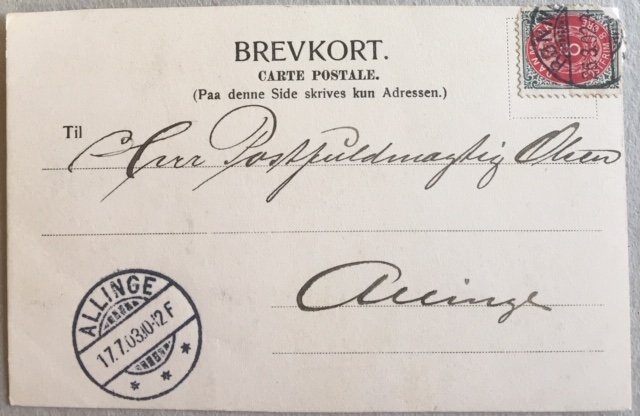 BREVKORT.
CARTE POSTALE.
(Paa denne Side skrives kun Adressen.)
Til
Herr Postfuldmægtig Olsen
Allinge
ALLINGE
17.7.03.10-12 F